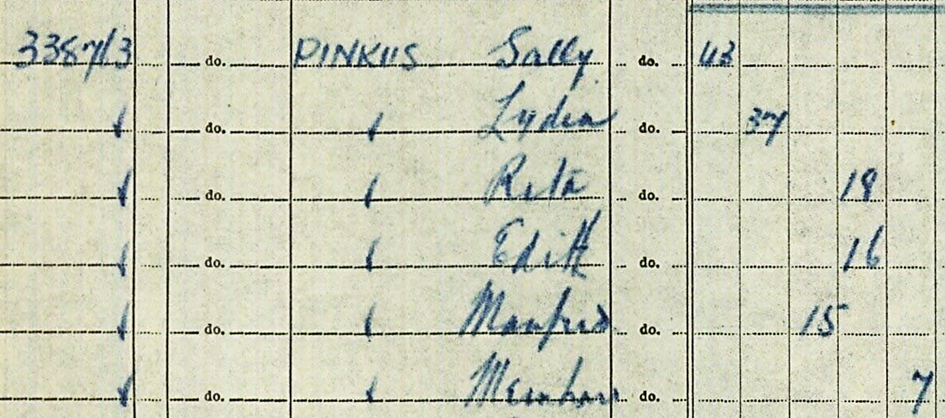 3387/13 do. PINKUS Sally do. 43
do. Lydia do. 37
do. Ruth do. 18
do. Edith do. 16
do. Manfred do. 15
do. do. 7